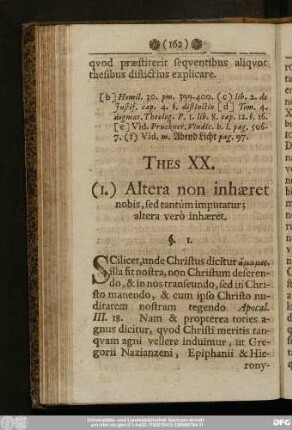 (162)
qvod præstiterit seqventibus aliqvot
thesibus distictius explicare.
[b] Homil. 30. pm. 399-400. (c) lib. 2. de
Justif. cap. 4. 6. distinctio [d] Tom. 4.
dogmat. Theolog. P. 1. lib. 8. cap. 12. §. 16.
[e] Vid. Pruckner. Vindic. b. l. pag. 506-
7. (f) Vid. m. Abend Licht pag. 97.
THES XX.
(1.) Altera non inhæret
nobis, sed tantùm imputatur;
altera verò inhæret.
§. 1.
SCilicet, unde Christus dicitur ἄμωμος,
illa fit nostra, non Christum deseren-
do, & in nos transeundo, sed in Chri-
sto manendo, & cum ipso Christo nu-
ditatem nostram tegendo Apocal.
III. 18. Nam & propterea toties a-
gnus dicitur, qvod Christi meritis tan-
qvam agni vellere induimur, ut Gre-
gorii Nazianzeni, Epiphanii & Hie-
rony-
Universitäts- und Landesbibliothek Sachsen-Anhalt
DFG